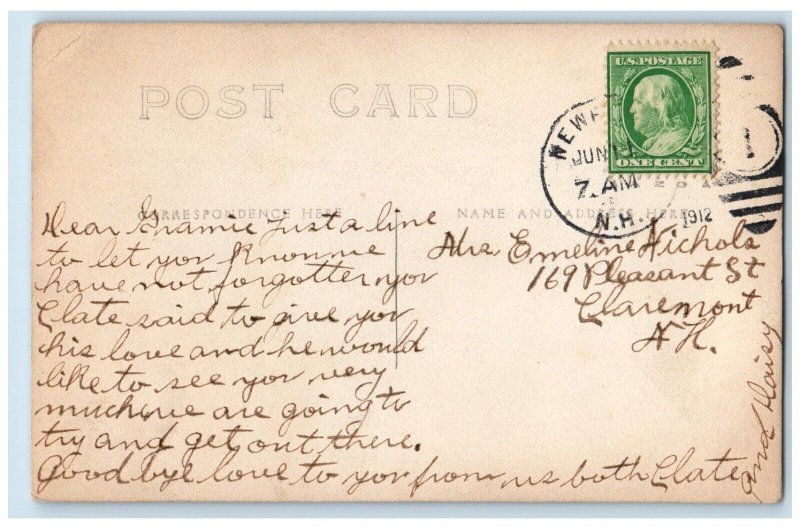 POST CARD
U.S. POSTAGE
ONE CENT
JUN
7. AM
N.H.
1912
CORRESPONDENCE HERE
NAME AND ADDRESS HERE
Dear Gramie Just a line
to let yor know we
have not forgotten yor
Clate said to give yor
his love and he would
like to see yor very
much we are going to
try and get out there.
Good bye love to yor from us both Clate
and Daisy
Mrs Emeline Nichols
169 Pleasant St
Claremont
N H.